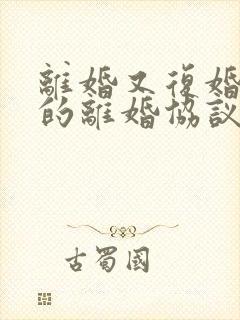 離婚又復婚
的離婚協議
古蜀國